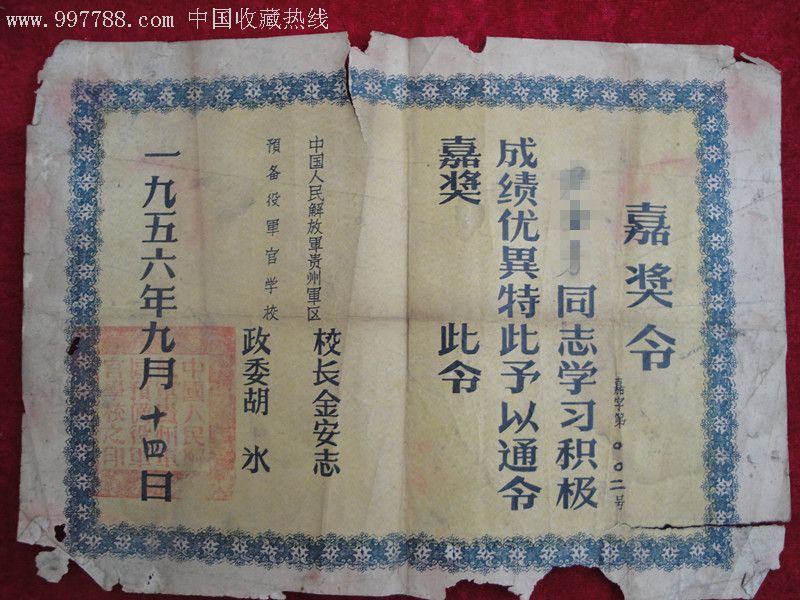 www.997788.com 中国收藏热线
嘉奖令
嘉字第〇〇二号
同志学习积极
成绩优異特此予以通令
嘉奖 此令
中国人民解放軍贵州軍区
預备役軍官学校
校长金安志
政委胡冰
一九五六年九月十四日